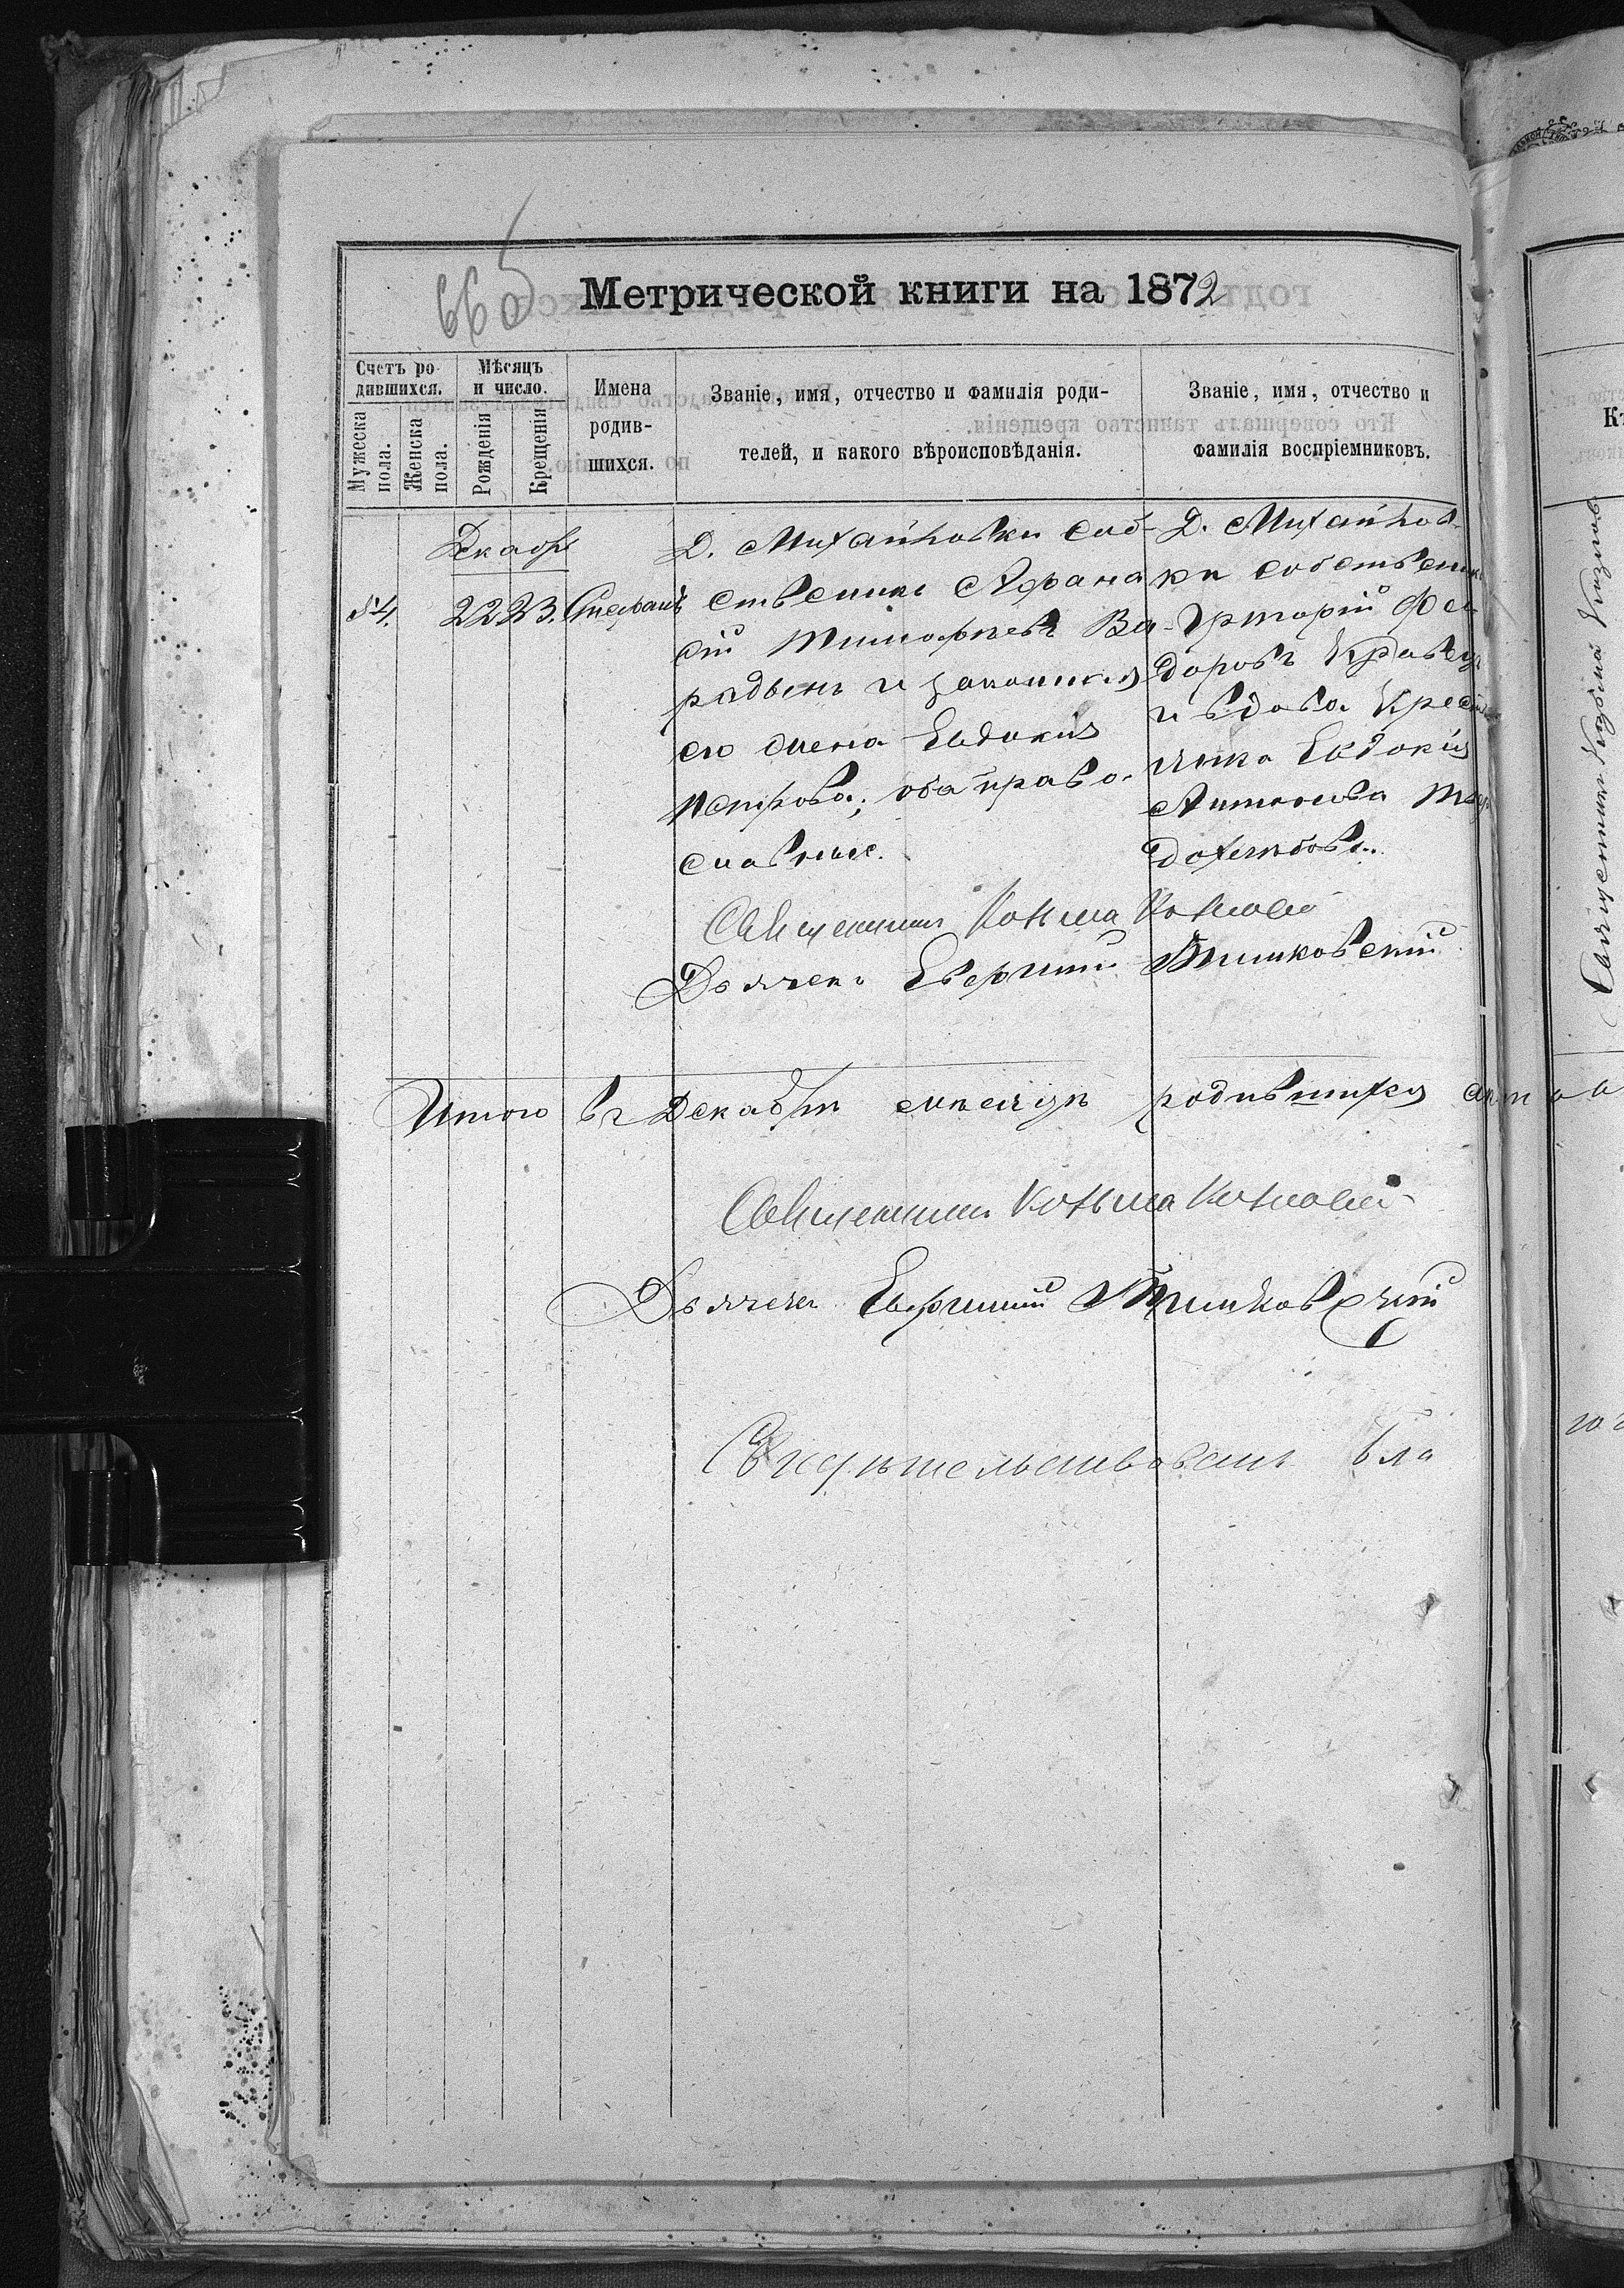 Метрической книги на 1872
Счетъ ро-
дившихся.
Мужеска
пола.
Женска
пола.
Мѣсяцъ
и число.
Рожденія
Крещенія
Имена
родив-
шихся.
Званіе, имя, отчество и фамилія роди-
телей, и какого вѣроисповѣданія.
Званіе, имя, отчество и
фамилія воспріемниковъ.
Декабр
54. 22 23. Стефанъ
Д. Михайловки соб-
ственникъ Афана
сій Тимофѣевъ Ва-
радынъ и законная
его жена Евдокія
Петрова; оба право-
славные.
Д. Михайлов-
ки собственник
Григорій Фео
доровъ Кравец
и вдова Крестья
янка Евдокія
Антонова
Священникъ Козьма
Дьячекъ Евфимій
Итого въ Декабрѣ мѣсяцѣ родившихся
Священникъ Козьма
Дьячекъ Евфимій
Свидѣтельствовалъ Бла